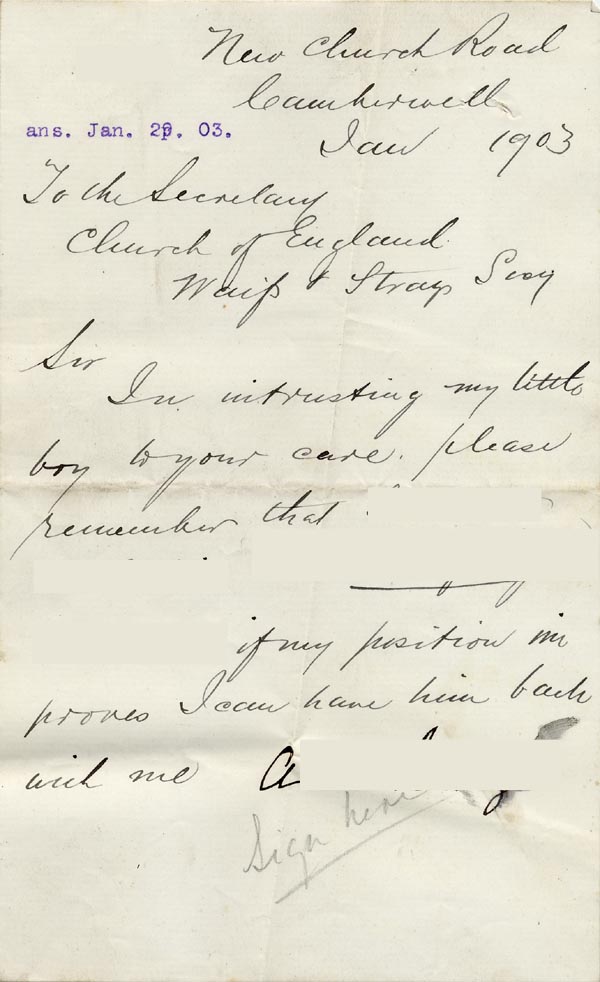 New Church Road
Camberwell
ans. Jan. 29. 03.
Jan 1903
To the Secretary
Church of England
Waifs & Strays Socy
Sir
In intrusting my little
boy to your care. please
remember that
if my position im
proves I can have him back
with me A
Sign here